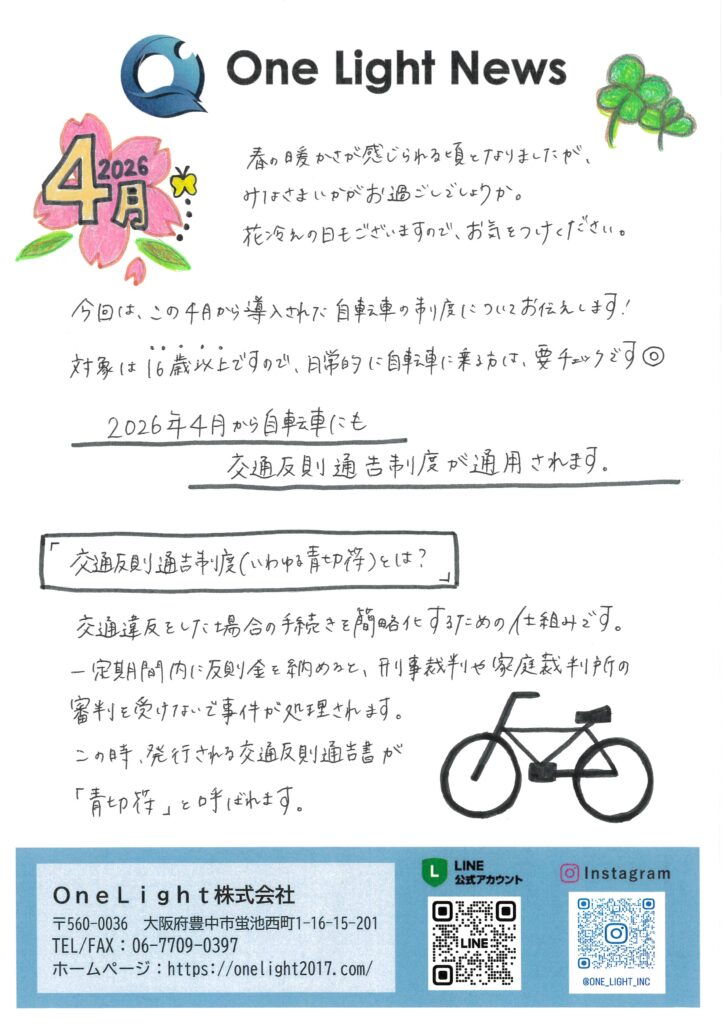 One Light News
2026
4月
春の暖かさが感じられる頃となりましたが、
みなさまいかがお過ごしでしょうか。
花冷えの日もございますので、お気をつけください。
今回は、この4月から導入された自転車の制度についてお伝えします!
対象は16歳以上ですので、日常的に自転車に乗る方は、要チェックです◎
2026年4月から自転車にも
交通反則通告制度が適用されます。
「交通反則通告制度(いわゆる青切符)とは?」
交通違反をした場合の手続きを簡略化するための仕組みです。
一定期間内に反則金を納めると、刑事裁判や家庭裁判所の
審判を受けないで事件が処理されます。
この時、発行される交通反則通告書が
「青切符」と呼ばれます。
OneLight株式会社
〒560-0036 大阪府豊中市蛍池西町1-16-15-201
TEL/FAX:06-7709-0397
ホームページ:https://onelight2017.com/
L LINE
公式アカウント
LINE
Instagram
@ONE_LIGHT_INC